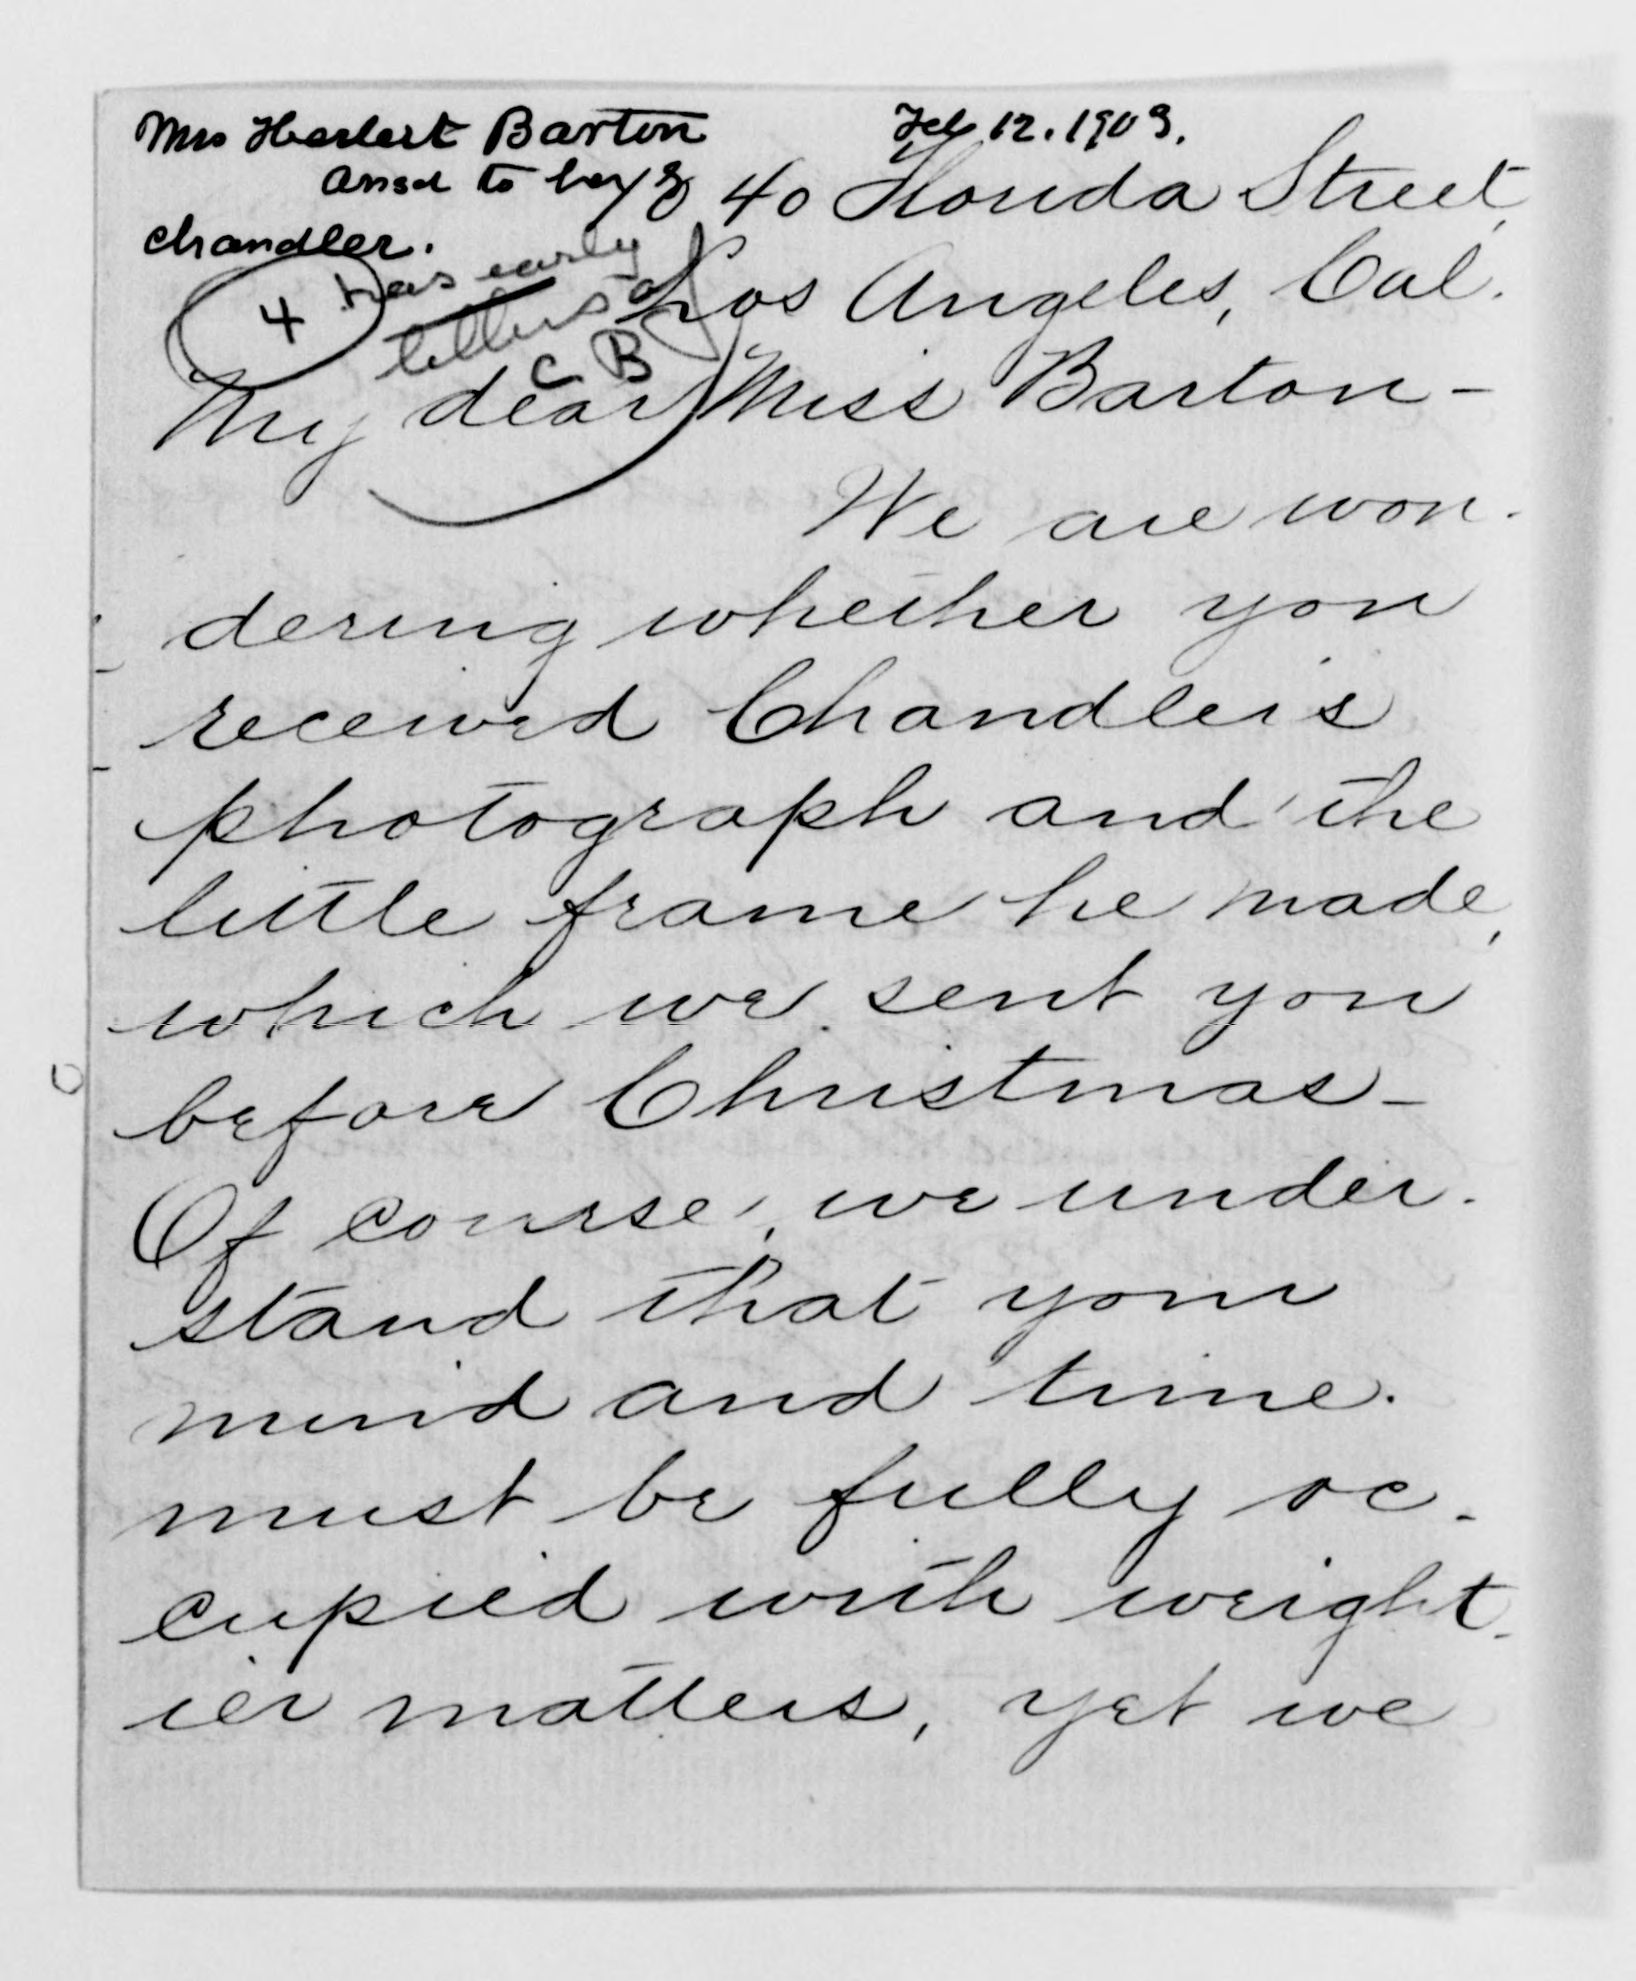 Mrs Herbert Barton Feb 12. 1903.
Ansd to boy
40 Florida Street,
Chandler.
4 has early
letters of
C B
Los Angeles, Cal.
My dear Miss Barton –
We are won-
dering whether you
received Chandler's
photograph and the
little frame he made,
which we sent you
before Christmas –
Of course, we under-
stand that your
mind and time
must be fully oc-
cupied with weight-
ier matters, yet we